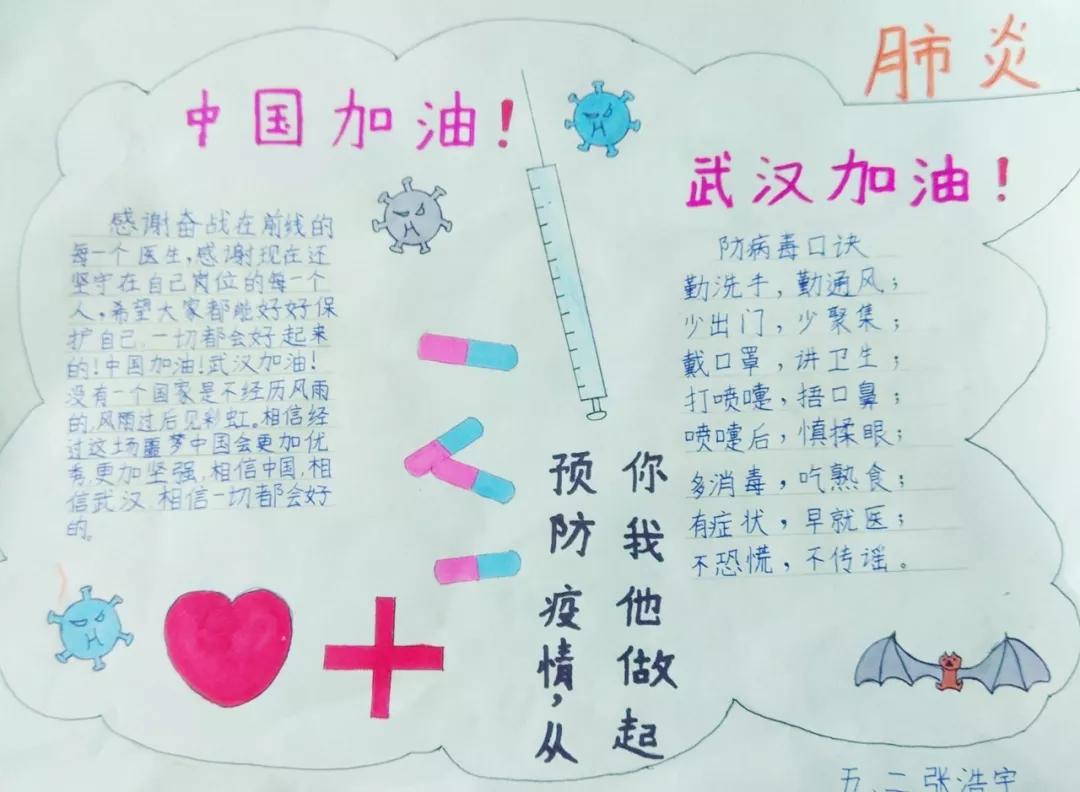 肺炎
中国加油!
武汉加油!
感谢奋战在前线的
每一个医生,感谢现在还
坚守在自己岗位的每一个
人,希望大家都能好好保
护自己,一切都会好起来
的!中国加油!武汉加油!
没有一个国家是不经历风雨
的,风雨过后见彩虹。相信经
过这场噩梦中国会更加优
秀,更加坚强,相信中国,相
信武汉 相信一切都会好
的。
防病毒口诀
勤洗手,勤通风;
少出门,少聚集;
戴口罩,讲卫生;
打喷嚏,捂口鼻;
喷嚏后,慎揉眼;
多消毒,吃熟食;
有症状,早就医;
不恐慌,不传谣。
预防疫情,从
你我他做起
五、二张浩宇